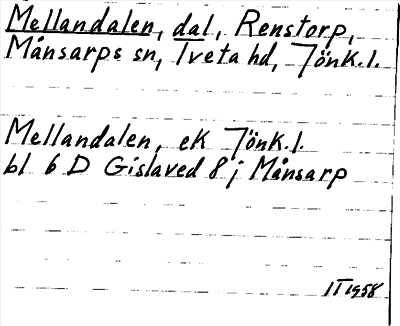 Mellandalen, dal, Renstorp,
Månsarps sn, Tveta hd, Jönk. l.
Mellandalen, ek Jönk. l.
bl 6 D Gislaved 8 j Månsarp
II 1958